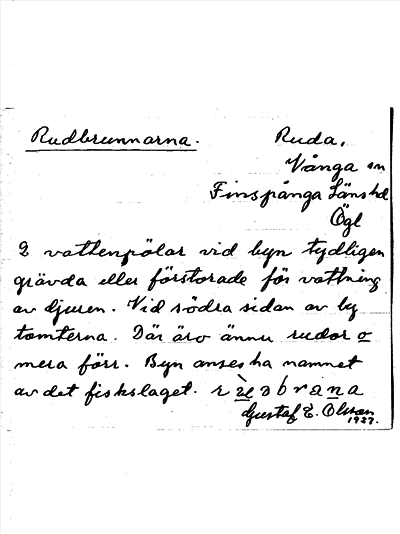 Rudbrunnarna. Ruda,
Vånga sn
Finspånga Länshd
Ögl
2 vattenpölar vid byn tydligen
grävda eller förstorade för vattning
av djuren. Vid södra sidan av by
tomterna. Där äro ännu rudor o
mera förr. Byn anses ha namnet
av det fiskslaget.
Gustaf E. Olsson
1937.